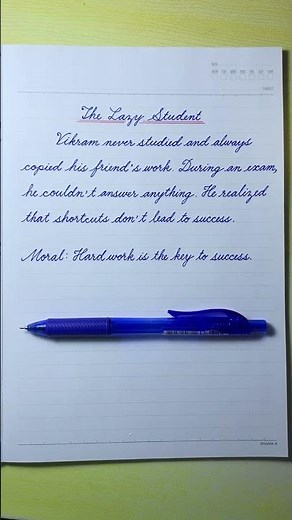 The Lazy Student
Vikram never studied and always
copied his friend's work. During an exam,
he couldn't answer anything. He realized
that shortcuts don't lead to success.
Moral: Hard work is the key to success.